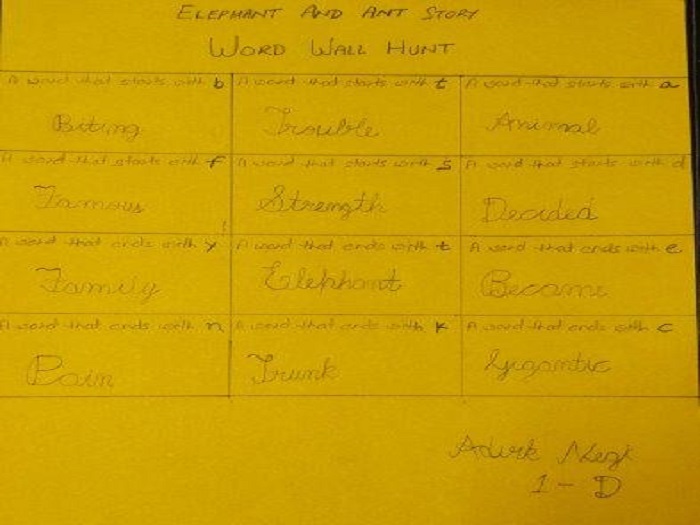 ELEPHANT AND ANT STORY
WORD WALL HUNT
A word that starts with b A word that starts with t A word that starts with a
Biting Trouble Animal
A word that starts with f A word that starts with s A word that starts with d
Famous Strength Decided
A word that ends with y A word that ends with t A word that ends with e
Family Elephant Became
A word that ends with n A word that ends with k A word that ends with c
Pain Trunk Gigantic
1 - D